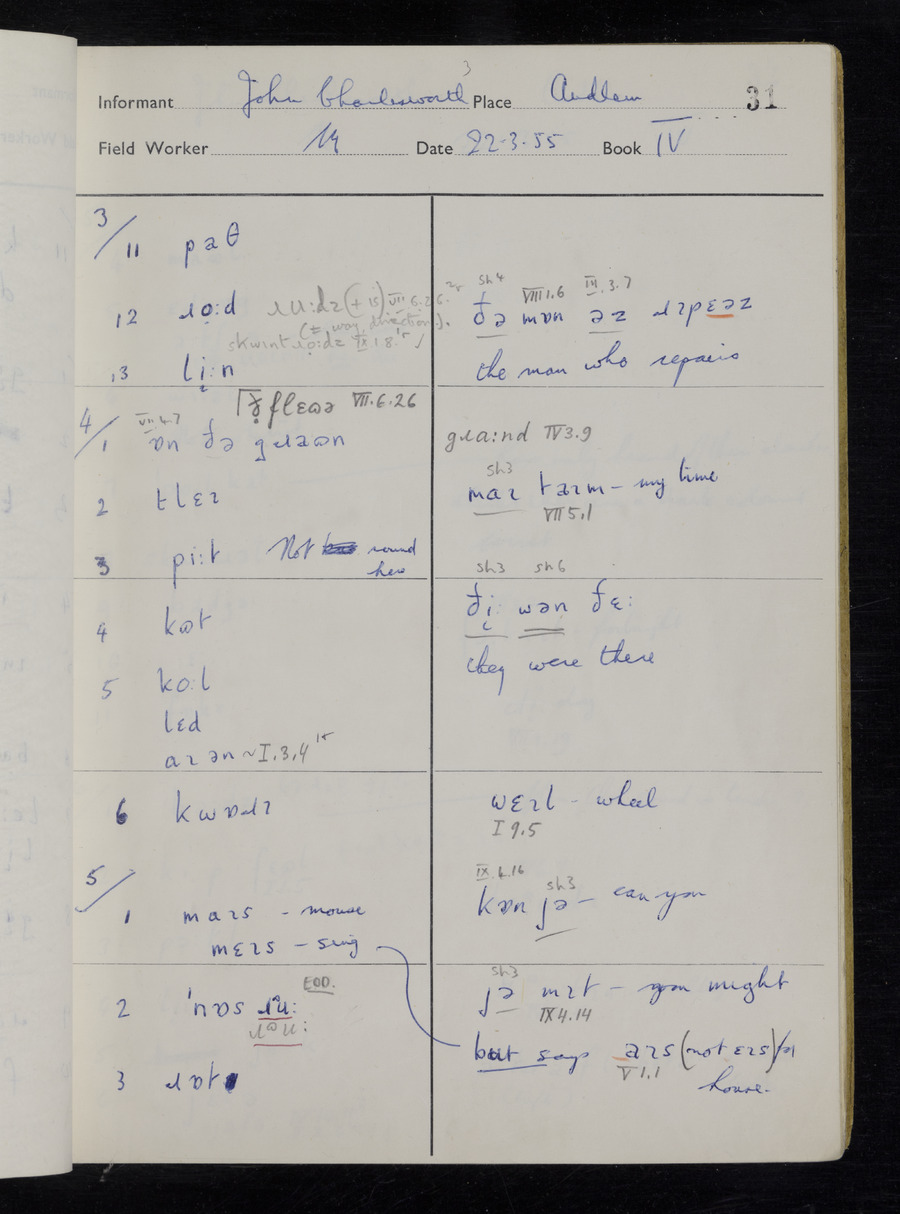 3
Informant John Charlesworth Place Audlem 31
Field Worker M Date 22-3-55 Book IV
3/11 pəθ
12 ɹo:d ɹu:dz (+ is) VIII 6.26.
(= way, direction).
skwɪnt ɹo:dz IX 1 8.
13 li:n
4/
VII.4.7 VII.6.26
1 ɒn ðə gɹaʊn
2 tlɛɪ
3 pi:t Not round
here
4 kʊt
5 ko:l
lɛd
aɪən ~ I.3.4
6 kwɒɹɪ
5/
1 maɪs - mouse
mɛɪs - sing
2 EDD.
3 ɹat
sh4 VIII 1.6 III.3.7
ðə mɒn əz ɹɪpɛəz
the man who repairs
gɹa:nd IV 3.9
sh3
maɪ taɪm - my time
VII 5.1
sh3 sh6
ði: wən ðɛ:
they were there
wɛɪl - wheel
I 9.5
IX.4.16
sh3
kɒn jə - can you
sh3
jə mɪt - you might
IX 4.14
but says aɪs (not ɛɪs) for
V 1.1
house.